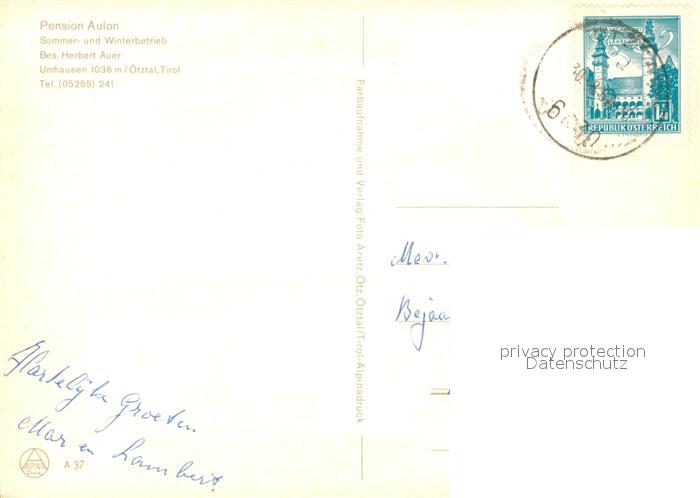 Pension Aulon
Sommer- und Winterbetrieb
Bes. Herbert Auer
Umhausen 1036 m / Ötztal, Tirol
Tel. (05255) 241
Farbaufnahme und Verlag: Foto Aretz, Ötz, Ötztal/Tirol-Alpinadruck
REPUBLIK ÖSTERREICH
Mevr.
Bejaa
privacy protection
Datenschutz
Hartelijke Groeten
Mar en Lambert.
A 37